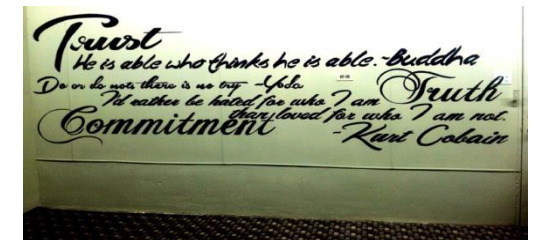 Trust
He is able who thinks he is able. -Buddha
Do or do not, there is no try -Yoda
Truth
I'd rather be hated for who I am
than loved for who I am not.
Commitment
-Kurt Cobain